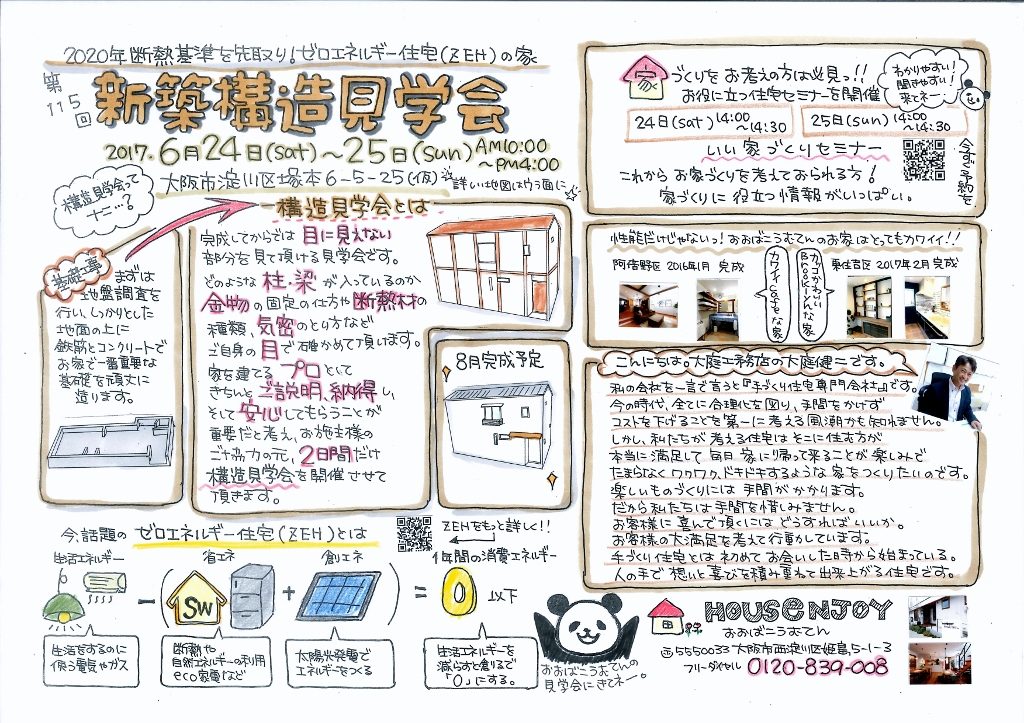 2020年断熱基準を先取り!ゼロエネルギー住宅(ZEH)の家
第115回
新築構造見学会
2017.6月24日(sat)〜25日(sun) AM10:00〜PM4:00
大阪市淀川区塚本6-5-25(仮)
詳しい地図はウラ面に☆
構造見学会ってナニ…?
構造見学会とは
完成してからでは目に見えない
部分を見て頂ける見学会です。
どのような柱・梁が入っているのか
金物の固定の仕方や断熱材の
種類、気密のとり方など
ご自身の目で確かめて頂けます。
家を建てるプロとして
きちんとご説明、納得し、
そして安心してもらうことが
重要だと考え、お施主様の
ご協力の元、2日間だけ
構造見学会を開催させて
頂きます。
基礎工事
まずは
地盤調査を
行い、しっかりとした
地面の上に
鉄筋とコンクリートで
お家で一番重要な
基礎を頑丈に
造ります。
8月完成予定
今、話題の ゼロエネルギー住宅(ZEH)とは
ZEHをもっと詳しく!!
生活エネルギー
省エネ
創エネ
1年間の消費エネルギー
SW
− ( + ) = 0 以下
生活をするのに
使う電気やガス
断熱や
自然エネルギーの利用
eco家電など
太陽光発電で
エネルギーをつくる
生活エネルギーを
減らすと創るで
「0」にする。
家づくりをお考えの方は必見っ!!
お役に立つ住宅セミナーを開催
わかりやすい!
聞きやすい!
来てネー
24日(sat) 14:00〜14:30
25日(sun) 14:00〜14:30
いい家づくりセミナー
今すぐ予約を
これからお家づくりを考えておられる方!
家づくりに役立つ情報がいっぱい。
性能だけじゃないっ!おおばこうむてんのお家はとってもカワイイ!!
阿倍野区2016年1月完成
カワイイcafeな家
カッコかわいい
Brooklynな家
東住吉区2017年2月完成
こんにちは。大庭工務店の大庭健二です。
私の会社を一言で言うと『手づくり住宅専門会社』です。
今の時代、全てに合理化を図り、手間をかけず
コストを下げることを第一に考える風潮かも知れません。
しかし、私たちが考える住宅はそこに住む方が
本当に満足して毎日家に帰って来ることが楽しみで
たまらなくワクワク、ドキドキするような家をつくりたいのです。
楽しいものづくりには手間がかかります。
だから私たちは手間を惜しみません。
お客様に喜んで頂くにはどうすればいいか。
お客様の大満足を考えて行動しています。
手づくり住宅とは初めてお会いした時から始まっている。
人の手で想いと喜びを積み重ねて出来上がる住宅です。
おおばこうむてんの
見学会にきてネー。
HOUSENJOY
おおばこうむてん
〒5550033 大阪市西淀川区姫島5-1-3
フリーダイヤル 0120-839-008